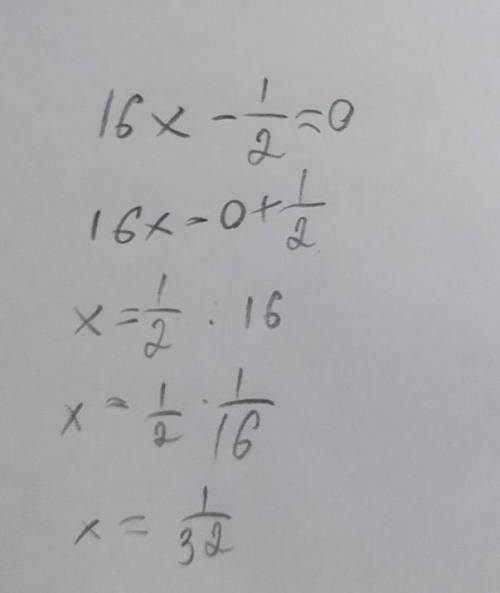 16x - 1/2 = 0
16x = 0 + 1/2
x = 1/2 : 16
x = 1/2 · 1/16
x = 1/32